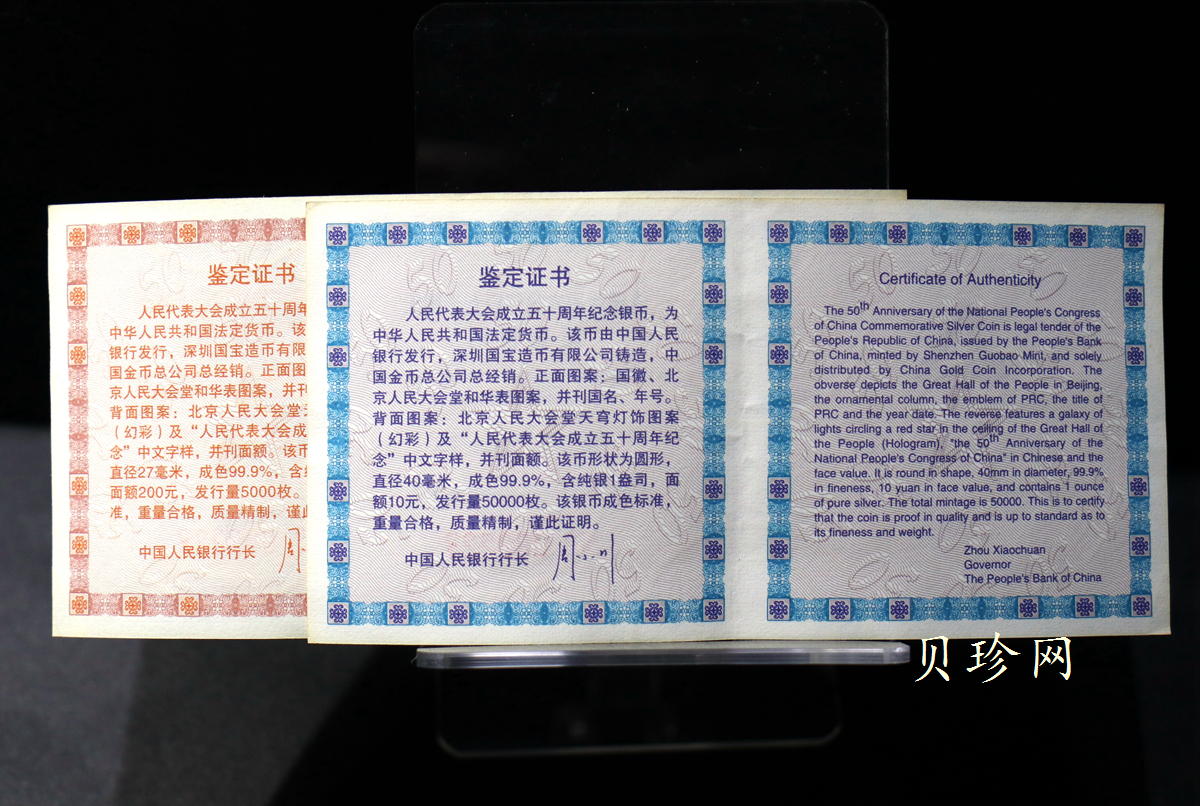 鉴定证书
人民代表大会成立五十周年
中华人民共和国法定货币。该
银行发行，深圳国宝造币有限
国金币总公司总经销。正面图
京人民大会堂和华表图案，并刊
背面图案：北京人民大会堂
（幻彩）及“人民代表大会成
念”中文字样，并刊面额。该币
直径27毫米，成色99.9%，含
面额200元，发行量5000枚。
准，重量合格，质量精制，谨此
中国人民银行行长
鉴定证书
人民代表大会成立五十周年纪念银币，为
中华人民共和国法定货币。该币由中国人民
银行发行，深圳国宝造币有限公司铸造，中
国金币总公司总经销。正面图案：国徽、北
京人民大会堂和华表图案，并刊国名、年号。
背面图案：北京人民大会堂天穹灯饰图案
（幻彩）及“人民代表大会成立五十周年纪
念”中文字样，并刊面额。该币形状为圆形，
直径40毫米，成色99.9%，含纯银1盎司，面
额10元，发行量50000枚。该银币成色标准，
重量合格，质量精制，谨此证明。
中国人民银行行长 周小川
Certificate of Authenticity
The 50th Anniversary of the National People's Congress
of China Commemorative Silver Coin is legal tender of the
People's Republic of China, issued by the People's Bank
of China, minted by Shenzhen Guobao Mint, and solely
distributed by China Gold Coin Incorporation. The
obverse depicts the Great Hall of the People in Beijing,
the ornamental column, the emblem of PRC, the title of
PRC and the year date. The reverse features a galaxy of
lights circling a red star in the ceiling of the Great Hall of
the People (Hologram), "the 50th Anniversary of the
National People's Congress of China" in Chinese and the
face value. It is round in shape, 40mm in diameter, 99.9%
in fineness, 10 yuan in face value, and contains 1 ounce
of pure silver. The total mintage is 50000. This is to certify
that the coin is proof in quality and is up to standard as to
its fineness and weight.
Zhou Xiaochuan
Governor
The People's Bank of China
贝珍网